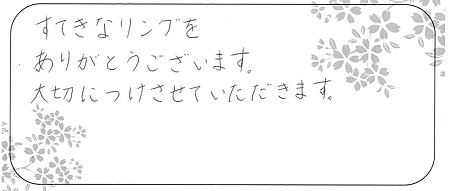 すてきなリングを
ありがとうございます。
大切につけさせていただきます。